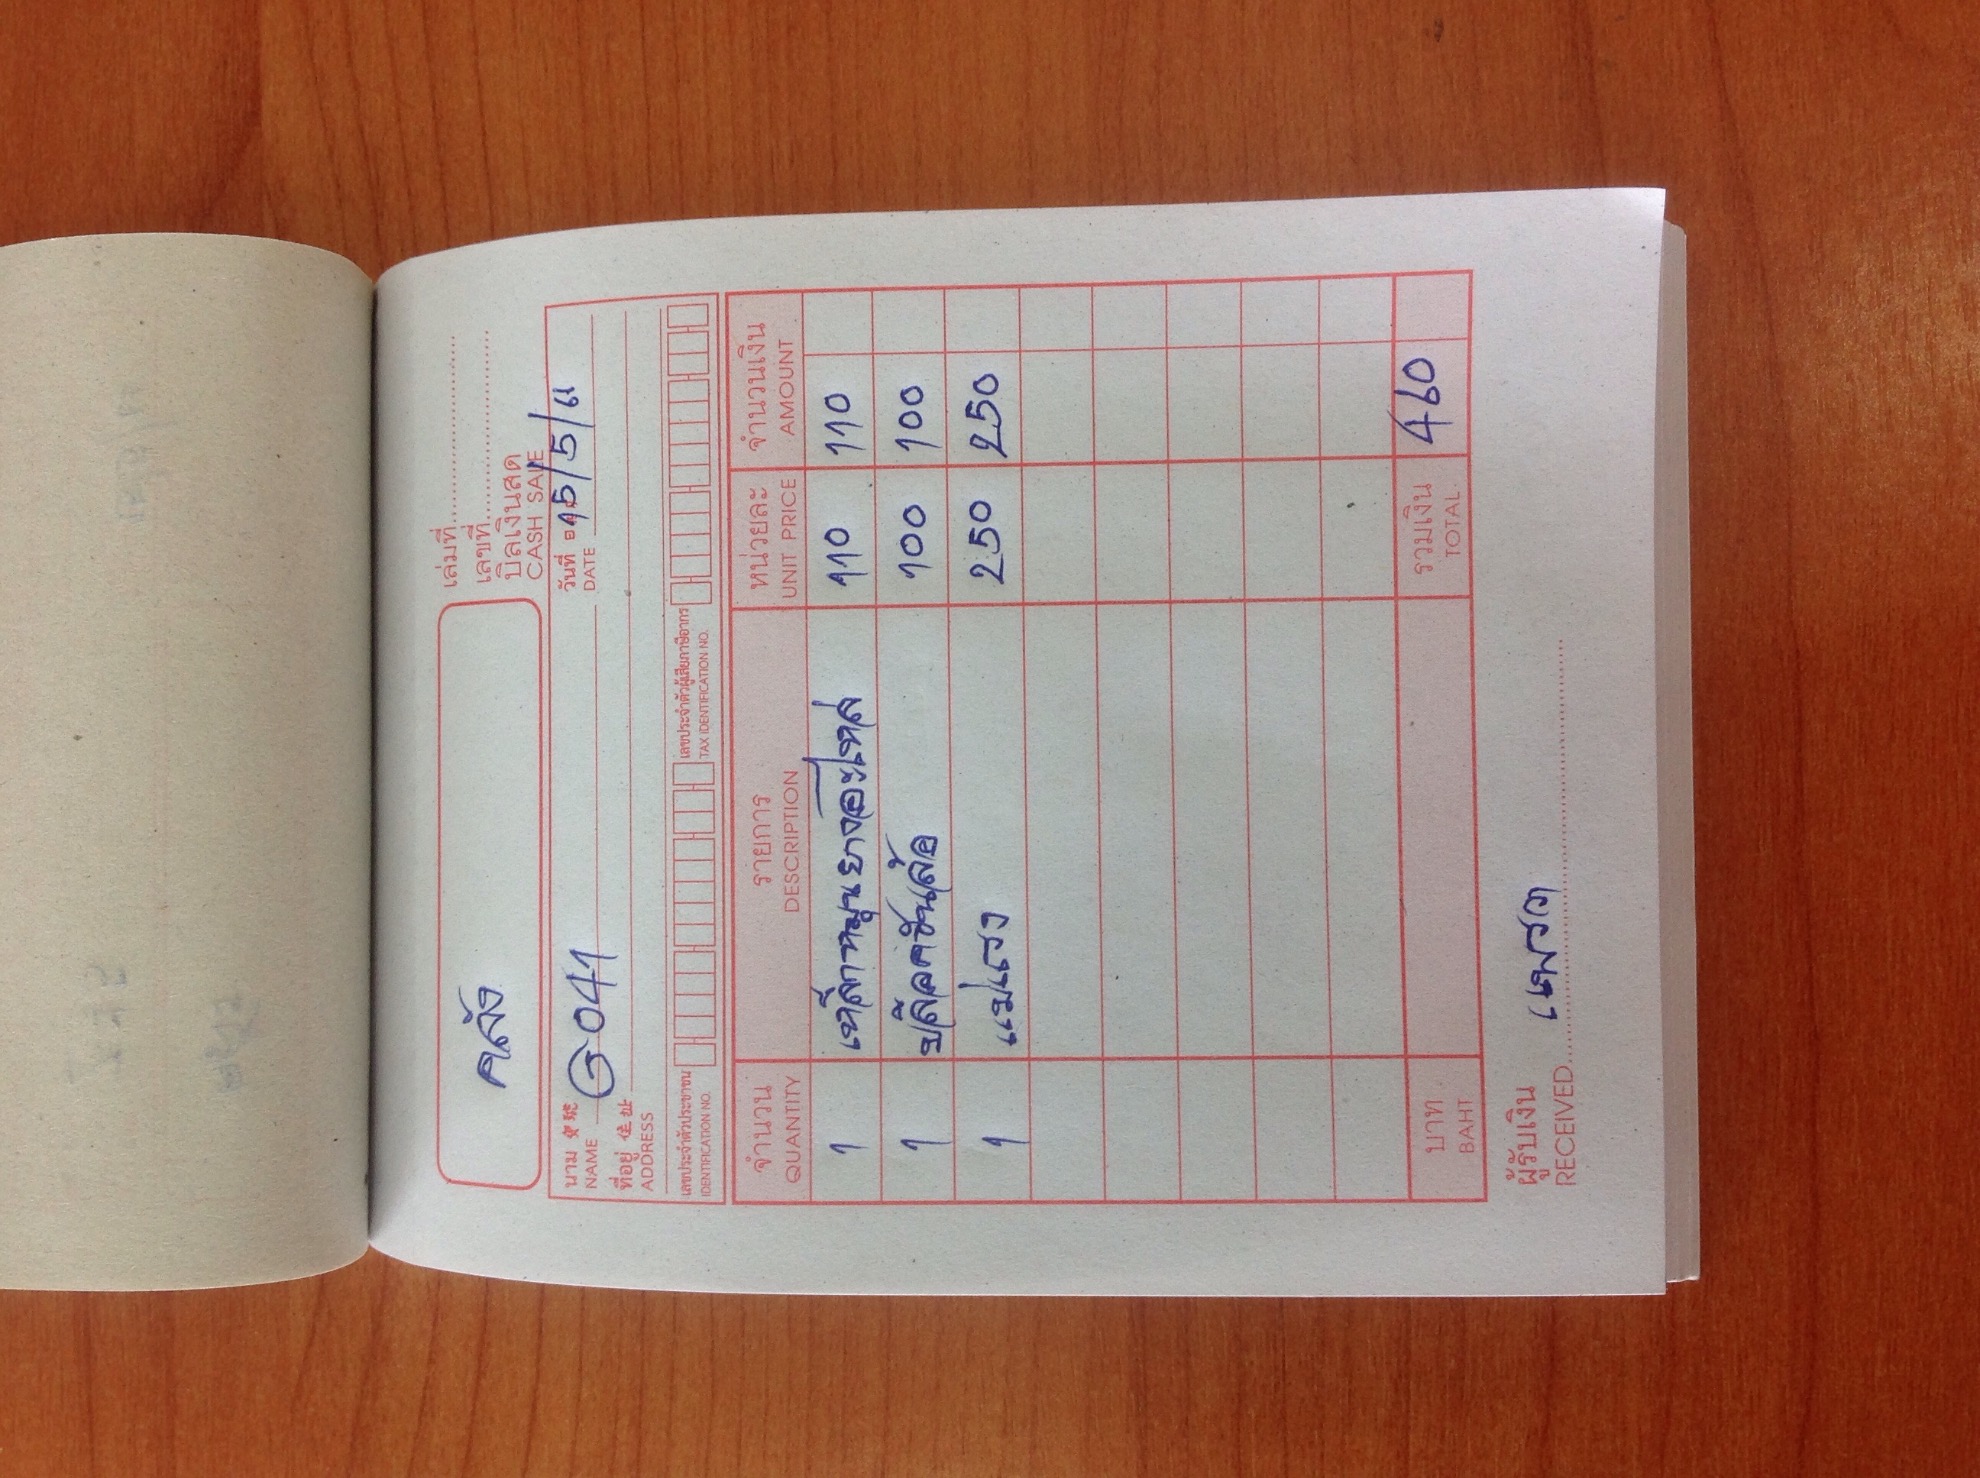 คลัง
เล่มที่
เลขที่
บิลเงินสด
CASH SALE
นาม 寶號 G041 วันที่ 15/5/61
NAME DATE
ที่อยู่ 住址
ADDRESS
เลขประจำตัวประชาชน เลขประจำตัวผู้เสียภาษีอากร
IDENTIFICATION NO. TAX IDENTIFICATION NO.
จำนวน รายการ หน่วยละ จำนวนเงิน
QUANTITY DESCRIPTION UNIT PRICE AMOUNT
1 เหล็กหมุนยางอะไหล่ 110 110
1 บล็อคขันล้อ 100 100
1 แม่แรง 250 250
บาท รวมเงิน 460
BAHT TOTAL
ผู้รับเงิน
RECEIVED